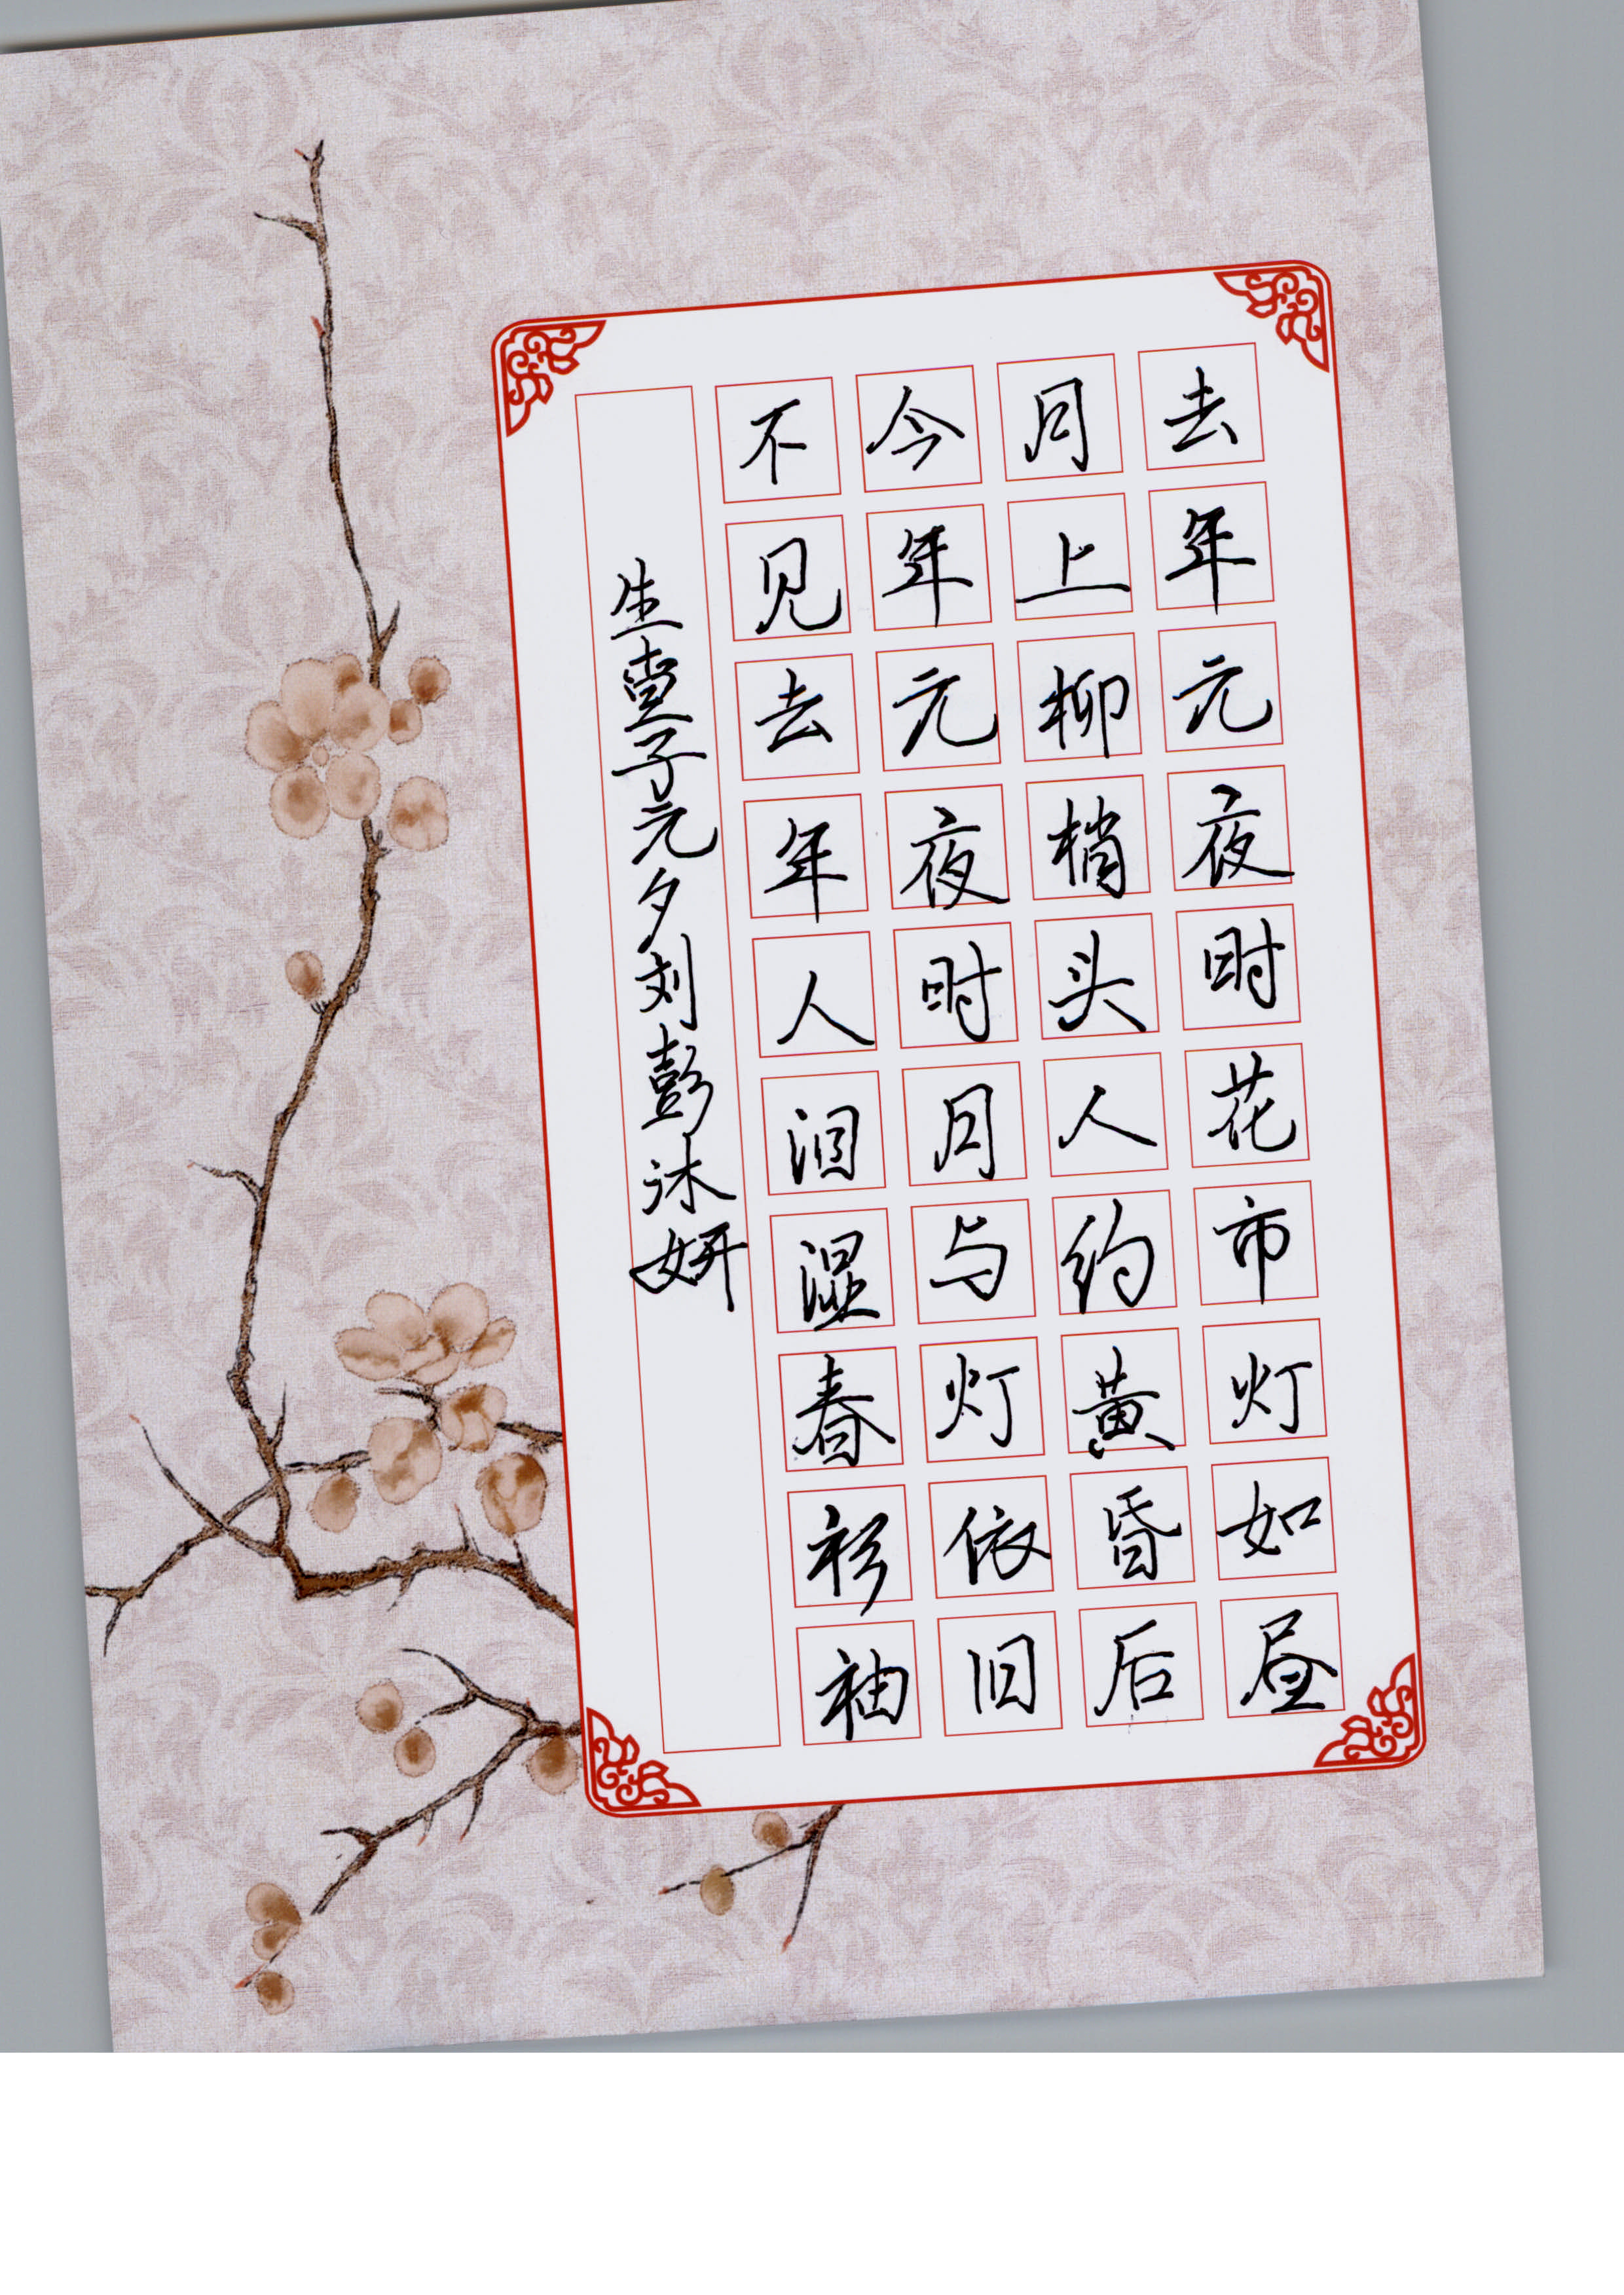 去年元夜时花市灯如昼
月上柳梢头人约黄昏后
今年元夜时月与灯依旧
不见去年人泪湿春衫袖
生查子元夕刘彭沐妍